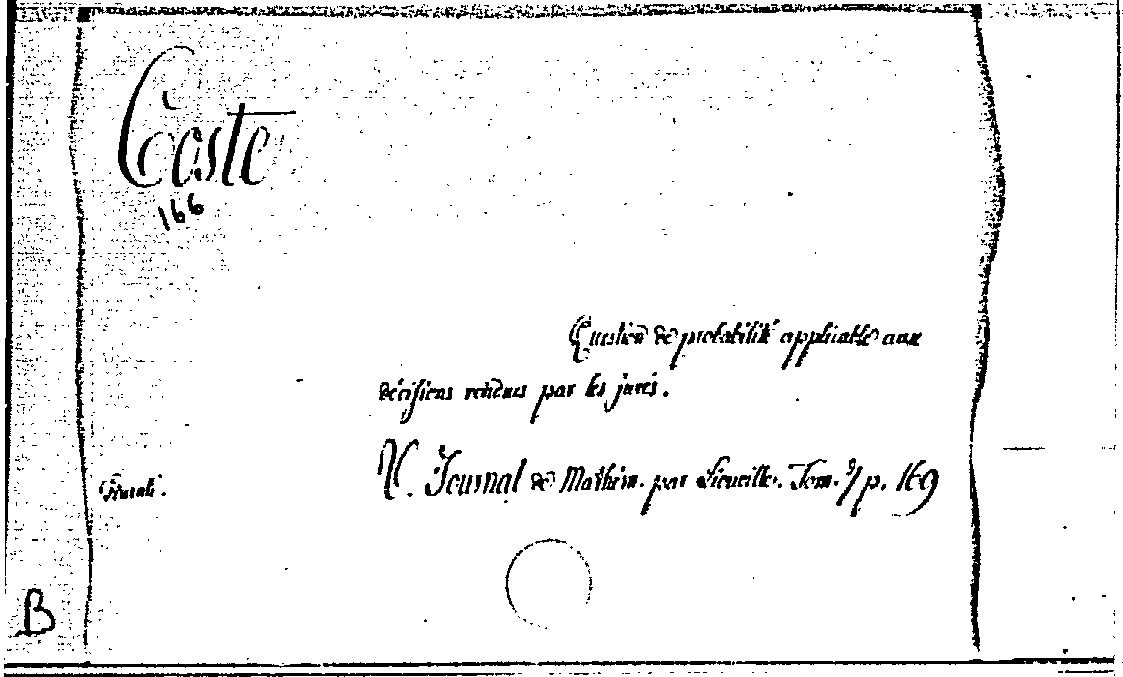 Coste
166
Question de probabilité applicable aux
décisions rendues par les jurés.
V. Journal de Mathém. par Liouville. Tom. 7 p. 169
B